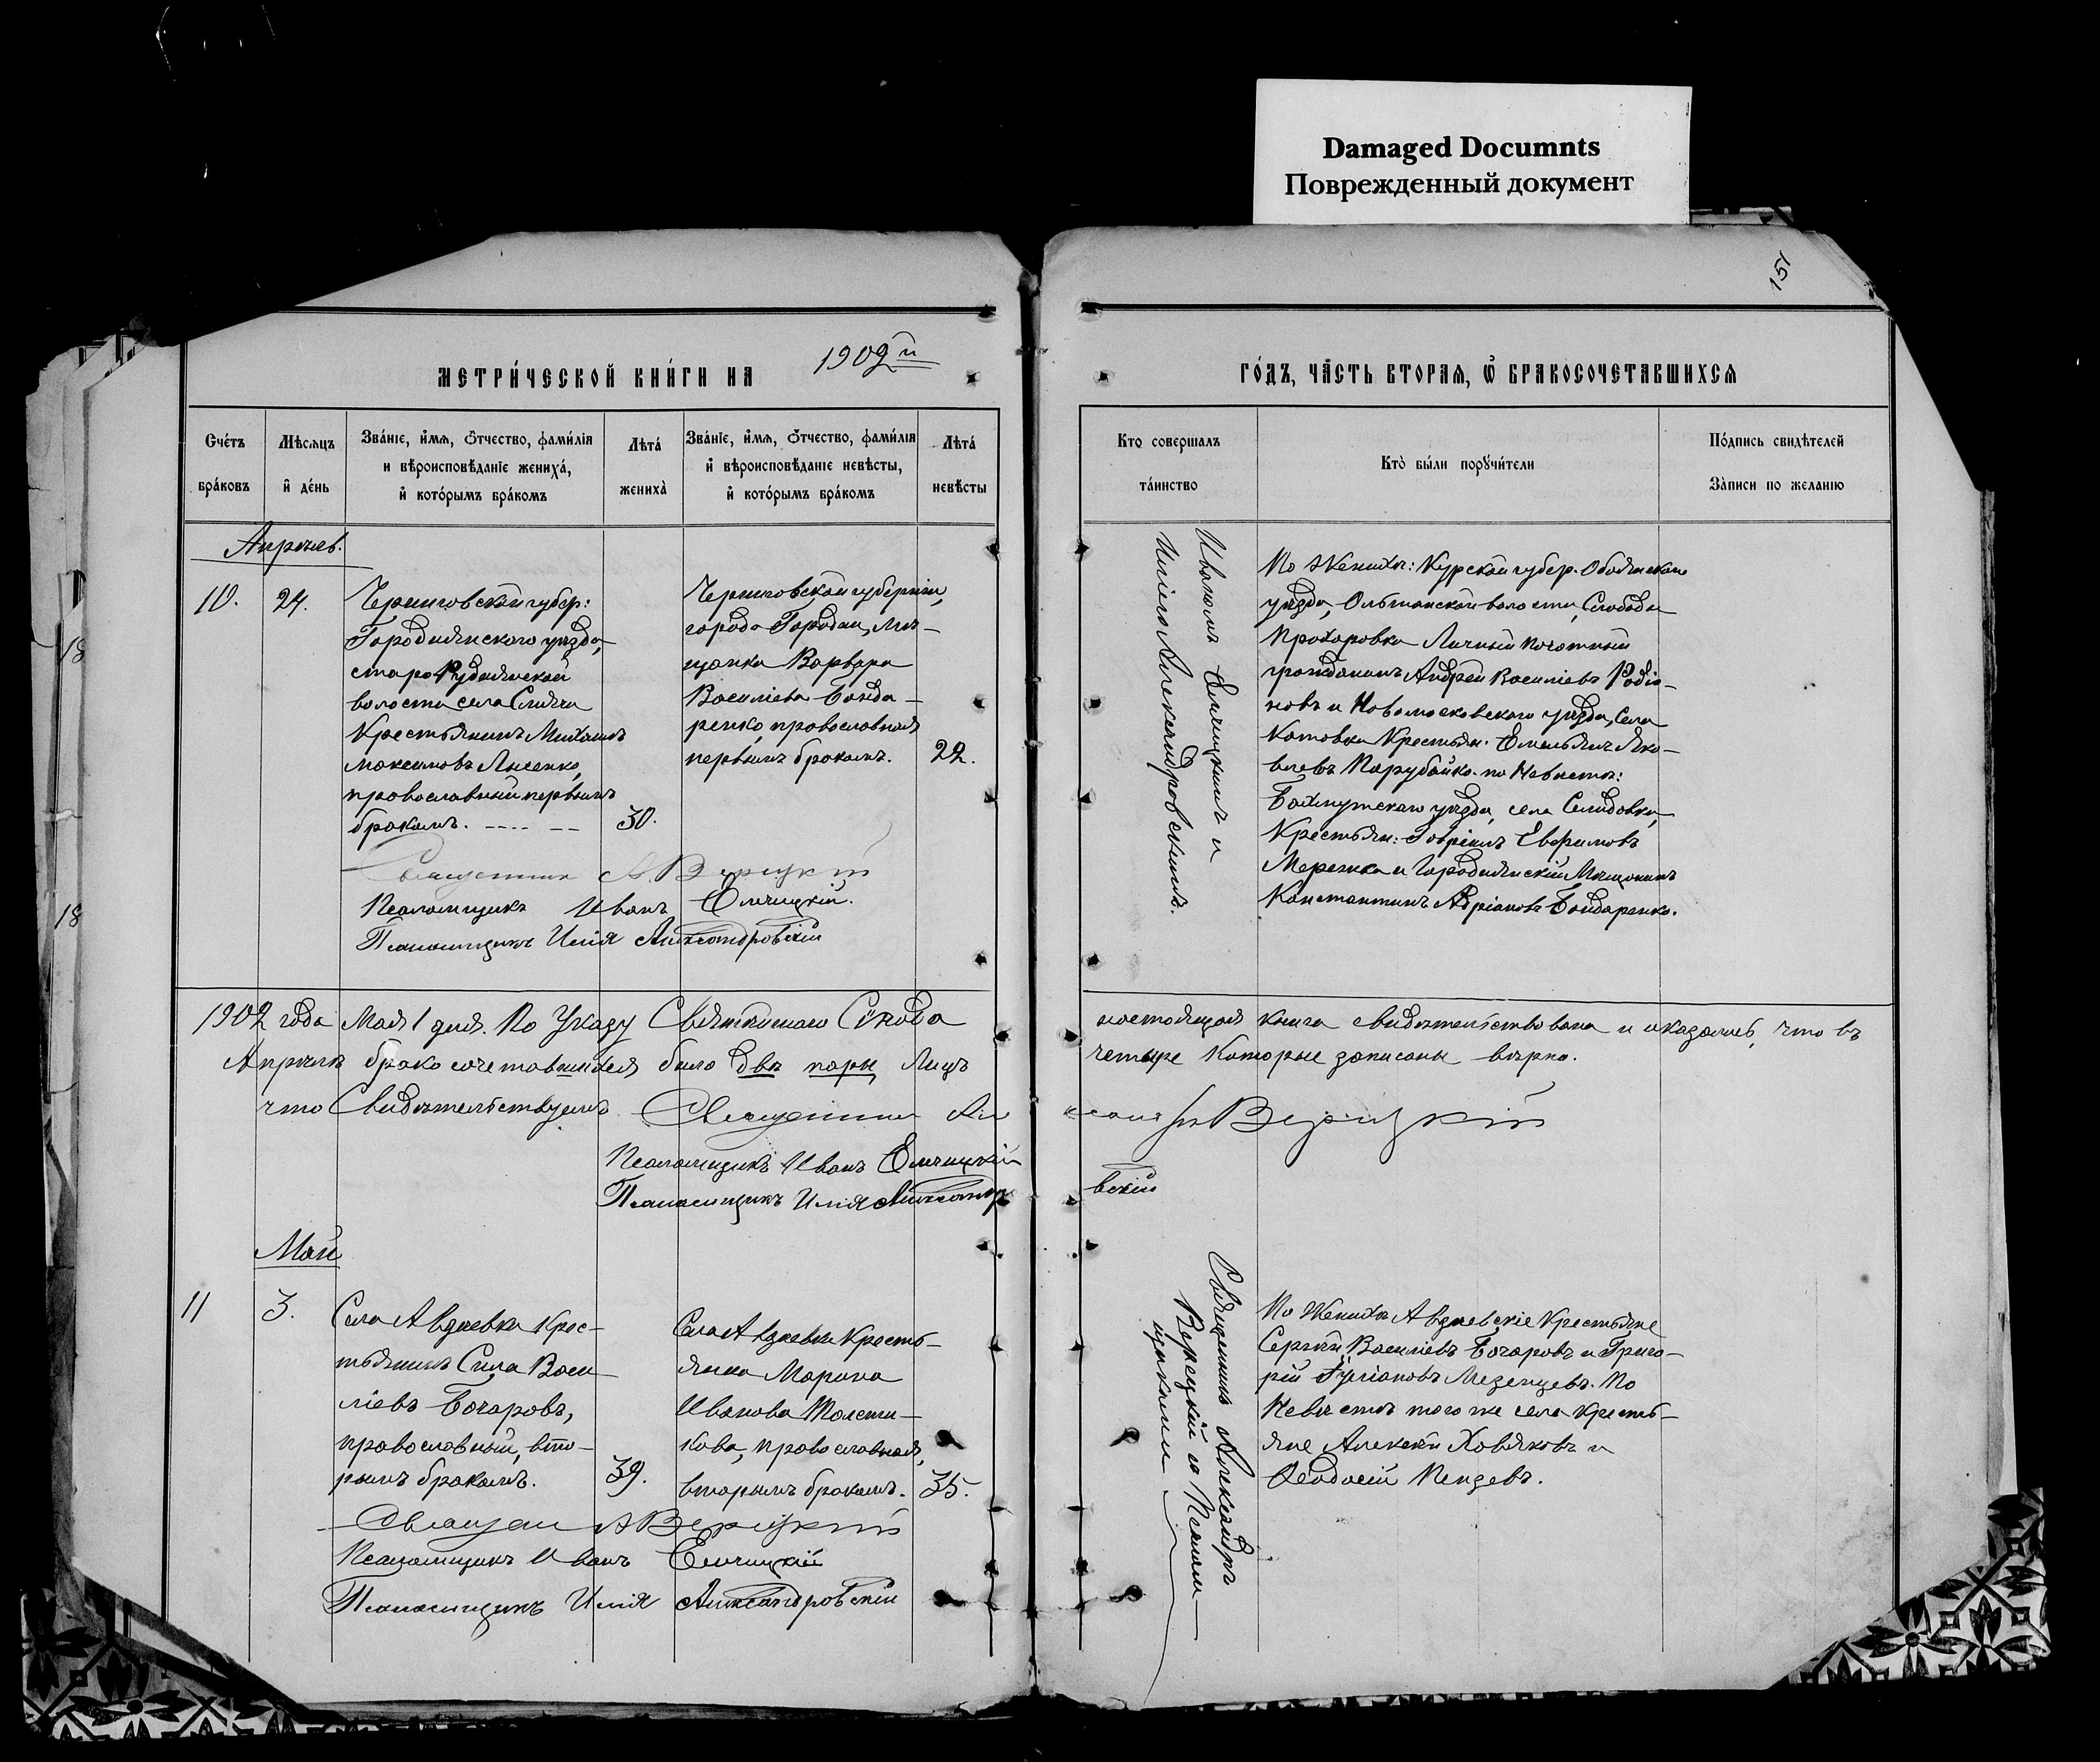 Damaged Documnts
Поврежденный документ
151
МЕТРИ́ЧЕСКОЙ КНИ́ГИ НА
1902й
ГО́ДЪ, ЧА́СТЬ ВТОРАЯ, Ѡ҆ БРАКОСОЧЕТАВШИХСЯ
Счéтъ
брáковъ
Мѣ́сяцъ
и҆ де́нь
Звáнїе, и҆́мя, ѻ҆́тчество, фами́лїя
и вѣроисповѣ́данїе женихá,
и҆ кото́рымъ брáкомъ
Лѣтá
женихà
Звáнїе, и҆́мя, ѻ҆́тчество, фами́лїя
и҆ вѣроисповѣ́данїе невѣ́сты,
и҆ кото́рымъ брáкомъ
Лѣтá
невѣ́сты
Кто совершалъ
тáинство
Ктò бы́ли порꙋчи́тели
По́дпись свидѣ́телей
Зáписи по желанїю
Апрѣль.
10.
24.
Черниговской губер:
Городнянского уѣзда,
старо Рудьнянской
волости села
Крестьянинъ Михаилъ
Максимовъ Лисенко,
православный первымъ
бракомъ. .... --
30.
Черниговской губерніи,
города Городни, мѣ-
щанка Варвара
Василіева Бонда-
ренко, православная
первымъ бракомъ.
22.
Иваномъ Еленицкимъ и
Иліею Александровскимъ.
По Женихѣ: Курской губер. Обоянскаго
уѣзда, Ольшанской волости, Слободы
Прохоровка Личный почетный
гражданинъ Андрей Василіевъ Родіо-
новъ и Новомосковского уѣзда, Села
Котовки Крестьян: Емельянъ Яко-
влевъ Парубайко. по Невѣстѣ:
Бахмутскаго уѣзда, села Селидовки,
Крестьян: Гавріилъ Евфимовъ
Мережка и Городнянскій Мѣщанинъ
Константинъ Адріановъ Бондаренко.
Священник А Верицкій
Псаломщикъ Иванъ Еленицкій.
Псаломщикъ Илія Александровскій
18
18
1902 года Мая 1 дня. По Указу Святѣйшаго Синода настоящая книга свидѣтельствована и оказалось, что въ
Апрѣлѣ бракосочетавшихся было двѣ пары, Лицъ четыре Которые записаны вѣрно.
что Свидѣтельствуемъ Священник Александръ Верицкій
Псаломщикъ Иванъ Еленицкій
Псаломщикъ Илія Александровскій
Май
11
3.
Села Авдѣевки Крес-
тьянинъ Сила Васи-
ліевъ Бочаровъ,
православный, вто-
рымъ бракомъ.
39.
Села Авдѣевки Кресть-
янка Марина
Иванова Толсти-
кова, православная,
вторымъ бракомъ.
35.
Священникъ Александръ
Верецкій съ Псалом-
щиками
По Женихѣ Авдѣевскіе Крестьяне
Сергѣй Василіевъ Бочаровъ и Григо-
рій Іуліановъ Мезенцевъ. По
Невѣстѣ того же села Кресть-
яне Алексѣй Ховяковъ и
Ѳеодосій Пенцевъ.
Священ А Верицкій
Псаломщикъ Иванъ Еленицкій
Псаломщикъ Илія Александровскій